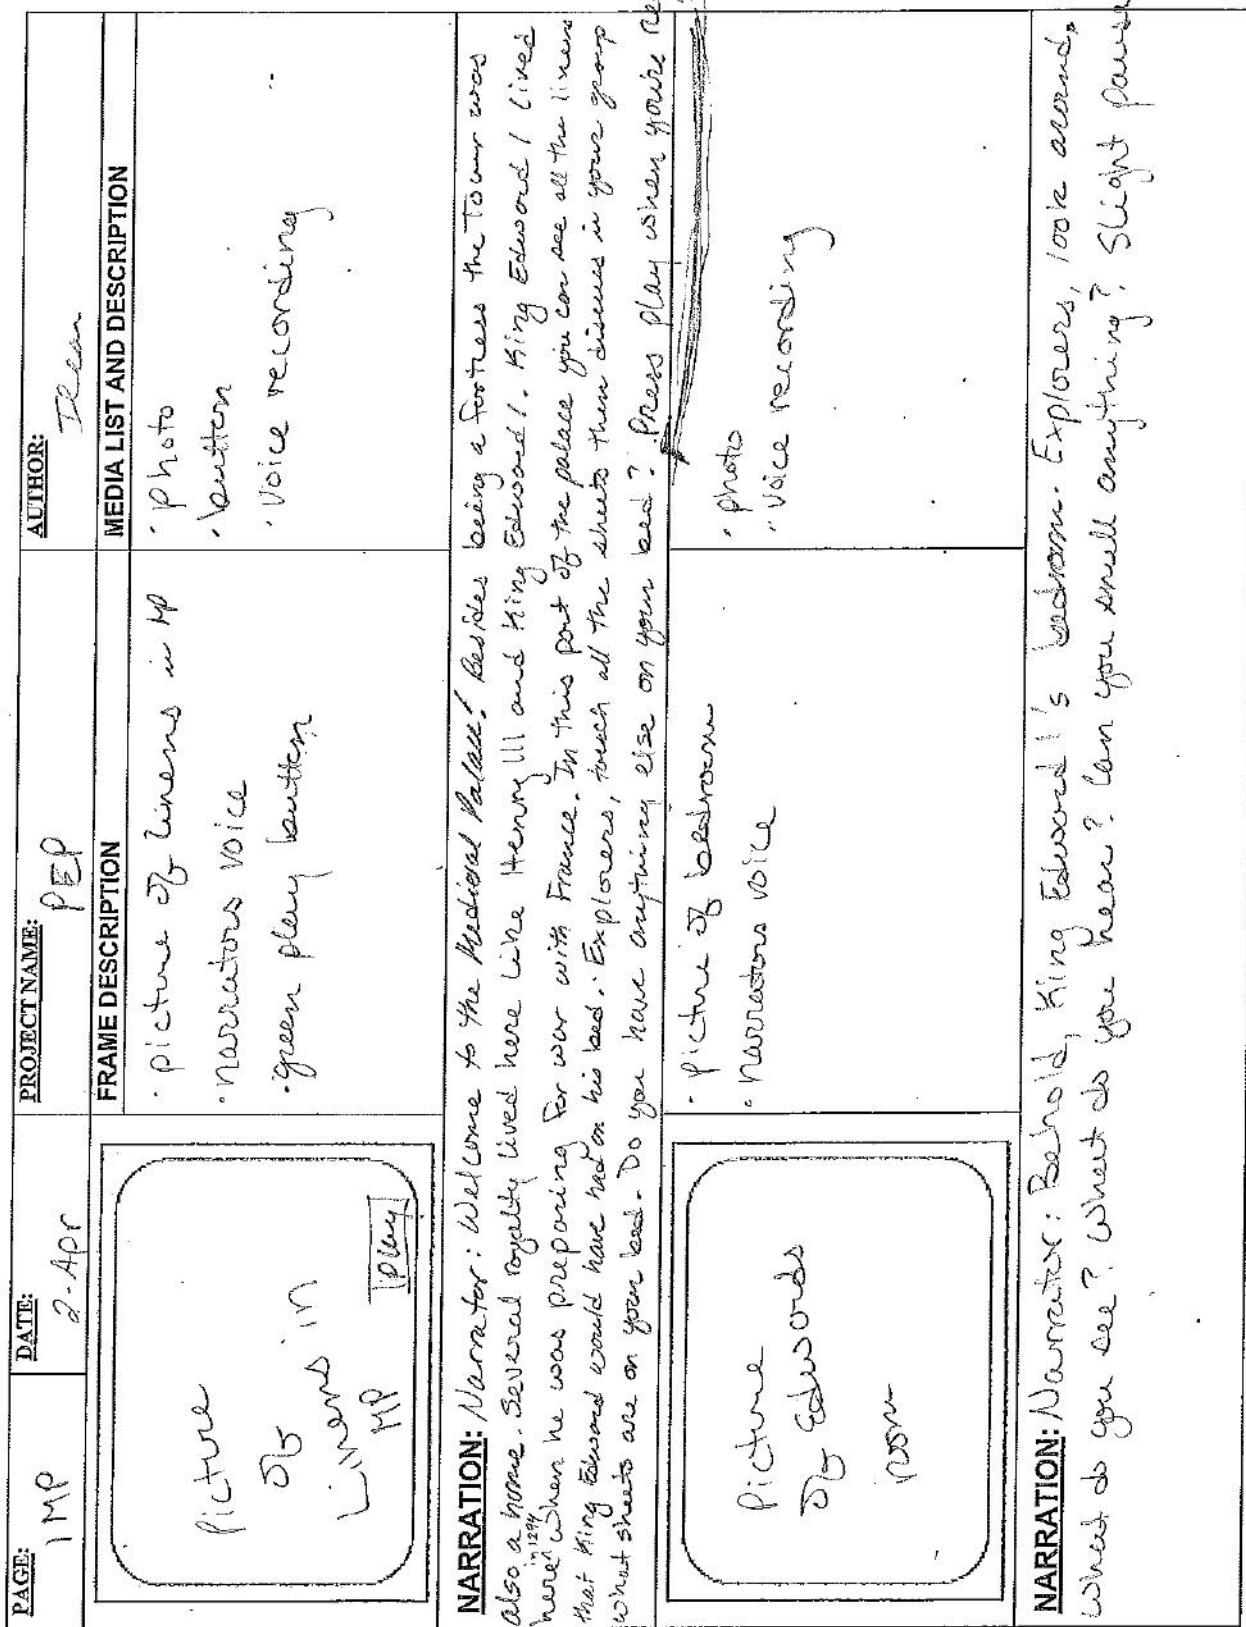 PAGE: 1MP
DATE: 2-Apr
PROJECT NAME: PEP
AUTHOR:
FRAME DESCRIPTION
MEDIA LIST AND DESCRIPTION
Picture
of
Linens in
MP
play
· picture of linens in MP
· narrators voice
· green play button
· photo
· button
· Voice recording
NARRATION: Narrator: Welcome to the Medieval Palace! Besides being a fortress the Tower was
also a home. Several royalty lived here like Henry III and King Edward I. King Edward I lived
here in 1294 when he was preparing for war with France. In this part of the palace you can see all the linens
that King Edward would have had on his bed. Explorers, touch all the sheets then discuss in your group
what sheets are on your bed. Do you have anything else on your bed? Press play when you're
Picture
of Edwards
room
· Picture of bedroom
· narrators voice
· photo
· Voice recording
NARRATION: Narrator: Behold, King Edward I's bedroom. Explorers, look around,
what do you see? What do you hear? Can you smell anything? Slight